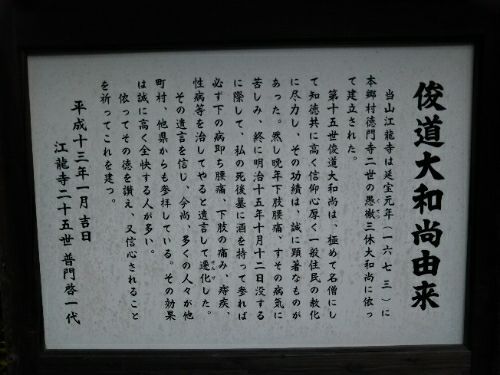 俊道大和尚由来
当山江龍寺は延宝元年(一六七三)に
本郷村徳門寺二世の愚徹三休大和尚に依っ
て建立された。
第十五世俊道大和尚は、極めて名僧にし
て知徳共に高く信仰心厚く一般住民の教化
に尽力し、その功績は、誠に顕著なものが
あった。然し晩年下肢腰痛、すその病気に
苦しみ、終に明治十五年十月十二日没する
に際して、私の死後墓に酒を持って参れば
必ず下の病即ち腰痛、下肢の痛み、痔疾、
性病等を治してやると遺言して遷化した。
その遺言を信じ、今尚、多くの人々が他
町村、他県からも参拝している。その効果
は誠に高く全快する人が多い。
依ってその徳を讃え、又信心されること
を祈ってこれを建つ。
平成十三年一月吉日
江龍寺二十五世 普門啓一代